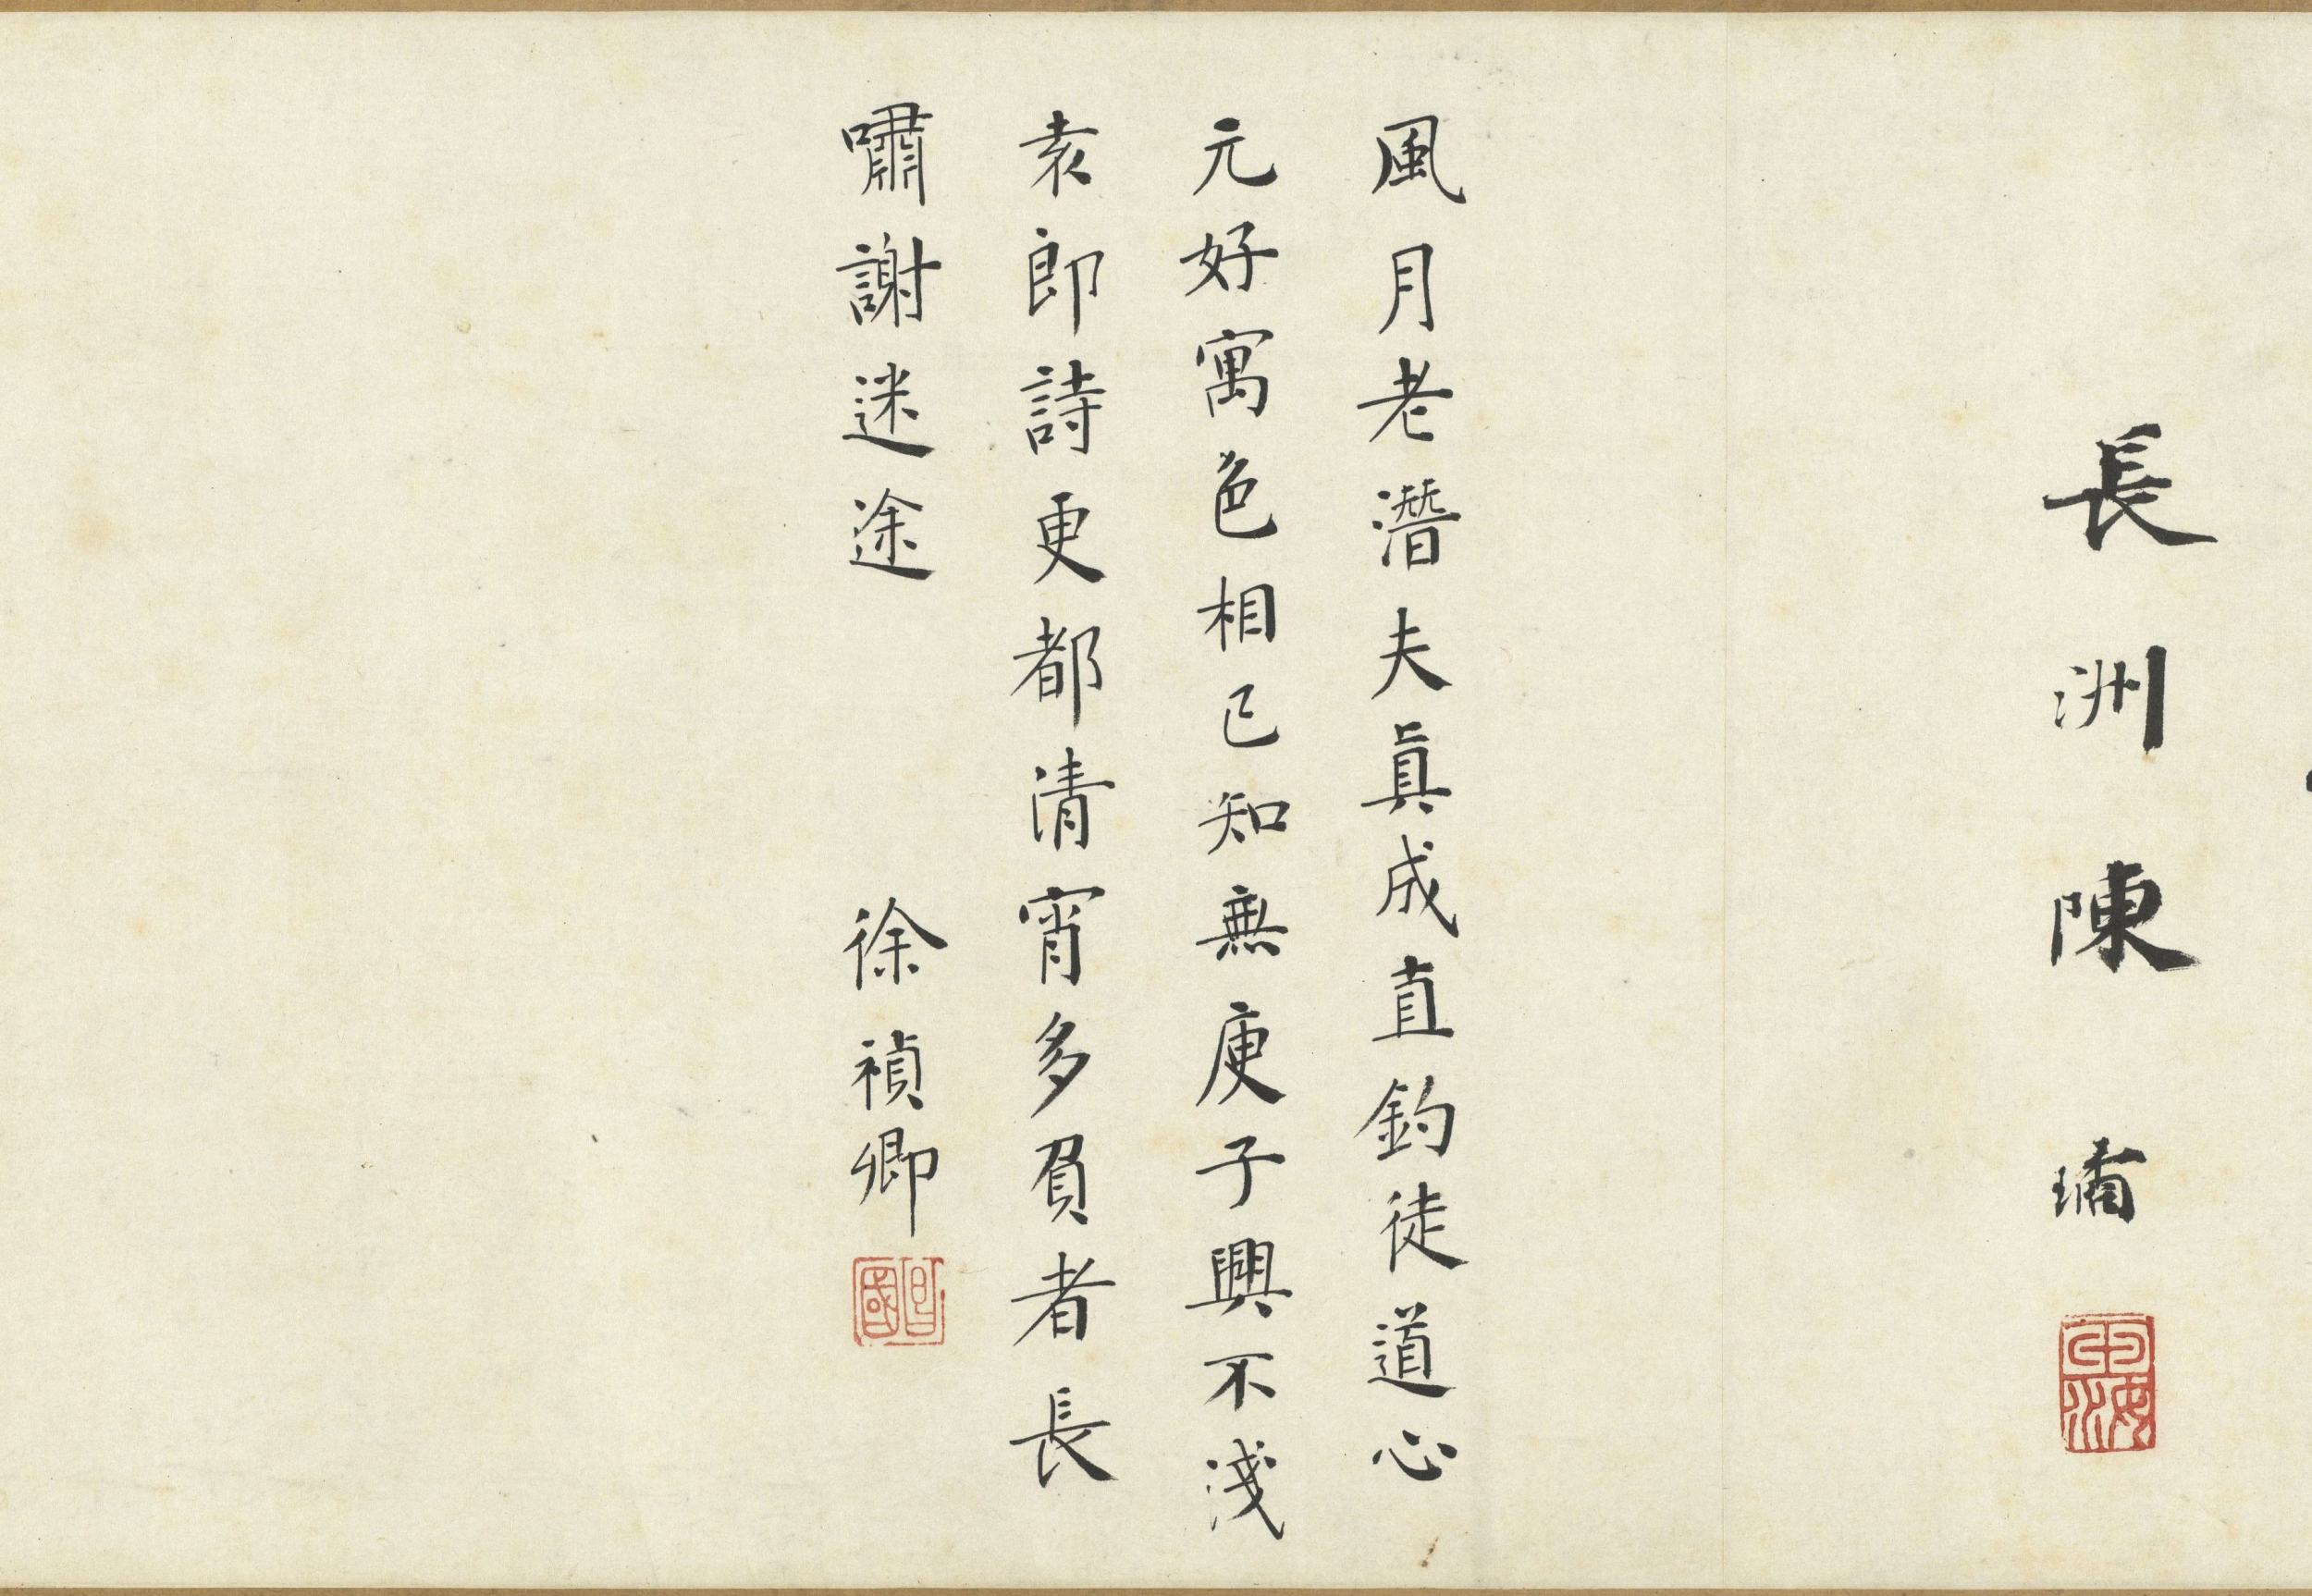 長洲陳璚
風月老潛夫真成直鈎徒道心
元好寓色相已知無庾子興不淺
袁郎詩更都清宵多負者長
嘯謝迷途　徐禎卿